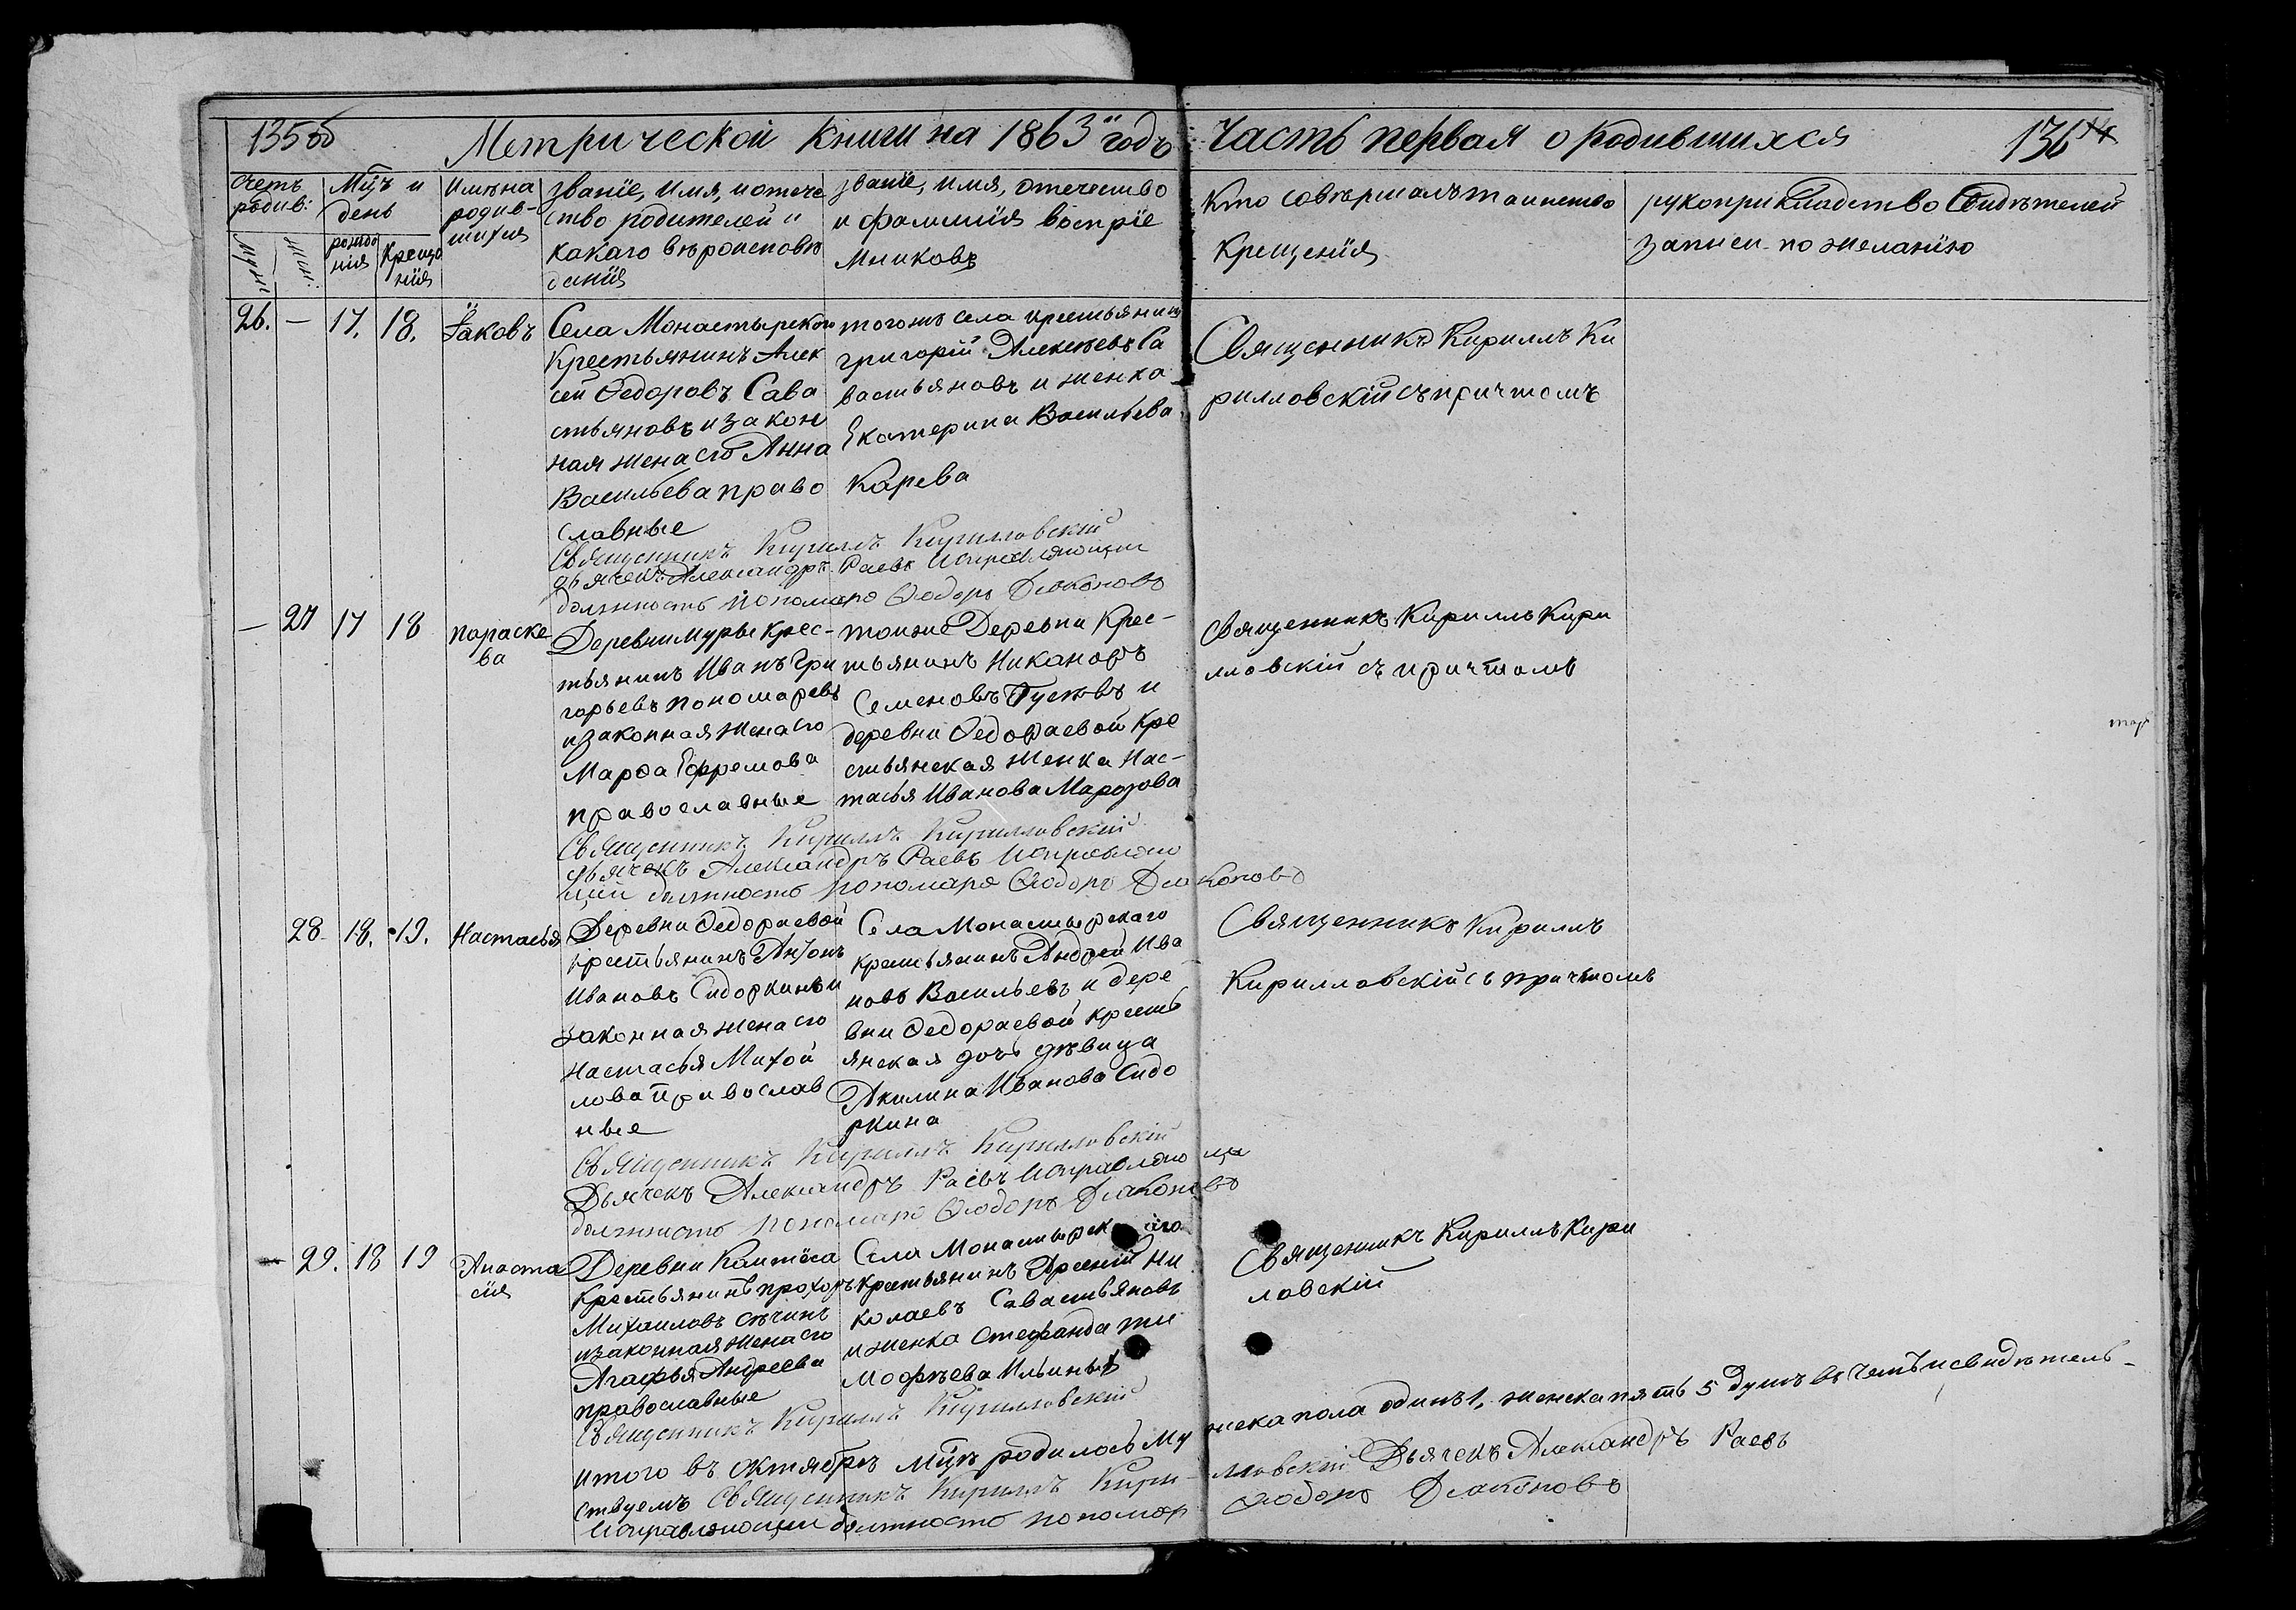 135об Метрической книги на 1863й годъ Часть первая о родившихся 136
Счетъ родив:
Муж:
Жен:
Мцъ и день
рожде
нія
Креще
нія
Имѣна
родив-
шихся
Званіе, имя, и отече
ство родителей и
какаго вѣроисповѣ
данія
Званіе, имя, отечество
и фамилія воспріе
мниковъ
Кто совѣршалъ таинство
крещенія
рукоприкладство Свидѣтелей
записи по желанію
26. — 17. 18. Іаковъ
Села Монастырскаго
Крестьянинъ Алек
сей Ѳедоровъ Сава
стьяновъ и закон
ная жена его Анна
Васильева право
славные
тогожъ села крестьянинъ
григорій Алексѣевъ Са
вастьяновъ и женка
Екатерина Васильева
Карева
Священникъ Кириллъ Ки
рилловскій съ причтомъ
Священникъ Кириллъ Кирилловскій
дьячекъ Александръ Раевъ Исправляющи
должность пономаря Ѳеодоръ Діаконовъ
— 27 17 18 параске
ва
Деревни Муры Крес-
тьянинъ Иванъ Гри
горьевъ Пономаревъ
и законная жена его
Марѳа Ефремова
православные
тоиже Деревни Крес-
тьянинъ Никаноръ
Семеновъ Гусевъ и
деревни Ѳедораевой Кре
стьянская женка Нас-
тасья Иванова Марозова
Священникъ Кириллъ Кири
лловскій съ причтомъ
Священникъ Кириллъ Кирилловскій
дьячекъ Александръ Раевъ Исправляю
щій должность пономаря Ѳеодоръ Діаконовъ
28. 18. 19. Настасья
Деревни Ѳедораевой
крестьянинъ Антонъ
Ивановъ Сидоркинъ и
законная жена его
Настасья Михай
лова православ
ные
Села Монастырскаго
крестьянинъ Андрей Ива
новъ Васильевъ и дере
вни Ѳедораевой кресть
янская дочь дѣвица
Акилина Иванова Сидо
ркина
Священникъ Кириллъ
Кирилловскій съ причтомъ
Священникъ Кириллъ Кирилловскій
Дьячекъ Александръ Раевъ Исправляющи
должность пономаря Ѳеодоръ Діаконовъ
— 29. 18 19 Анаста
сія
Деревни
Крестьянинъ прохоръ
Михаиловъ
и законная жена его
Агафья Андреева
православные
Села Монастырскаго
Крестьянинъ Арсеній Ни
колаевъ Савастьяновъ
и женка Стефанда Ти
мофѣева Ильиныхъ
Священникъ Кириллъ Кири
ловскій
Священникъ Кириллъ Кирилловскій
итого въ октябрѣ мцѣ родилось му жска пола одинъ 1, женска пять 5 душъ въ чемъ и свидѣтель-
ствуемъ Священникъ Кириллъ Кири-лловскій Дьячекъ Александръ Раевъ
Исправляющи должность пономар Ѳеодоръ Діаконовъ